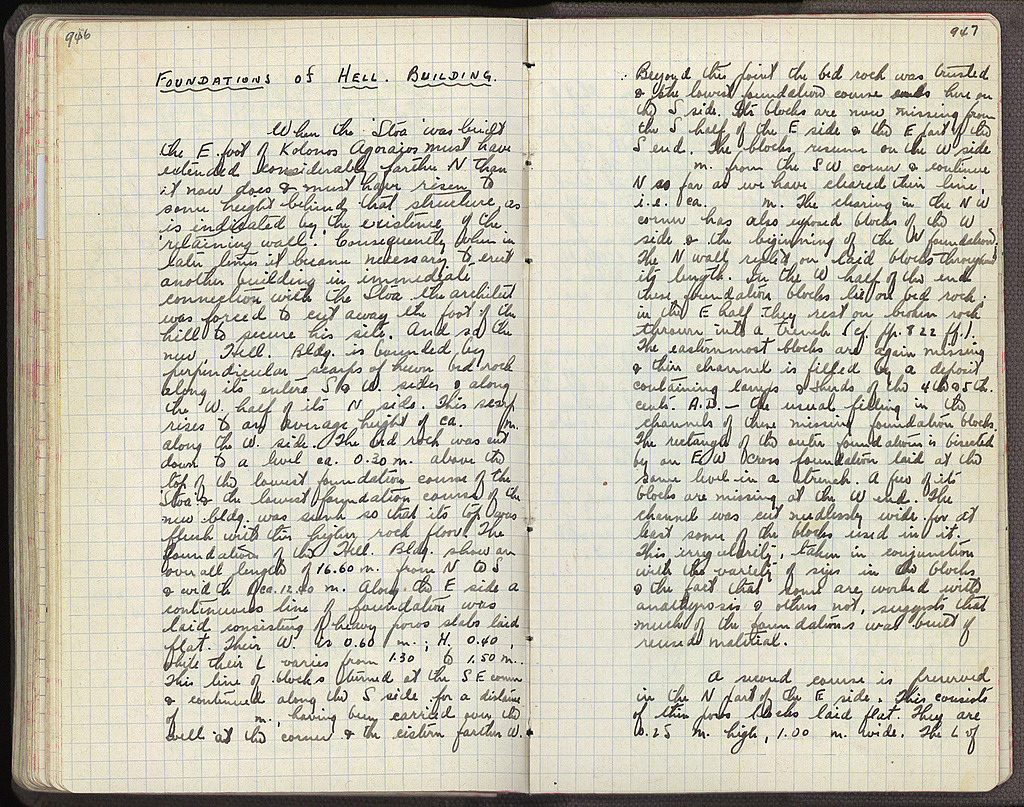 946
FOUNDATIONS of HELL. BUILDING.
When the 'Stoa' was built
the E. foot of Kolonos Agoraios must have
extended considerably farther N than
it now does & must have risen to
some height behind that structure, as
is indicated by the existence of the
retaining wall. Consequently when in
later times it became necessary to erect
another building in immediate
connection with the Stoa the architect
was forced to cut away the foot of the
hill to secure his site. And so the
new, Hell. Bldg. is bounded by
perpendicular scarps of hewn bed rock
along its entire S & W. sides & along
the W. half of its N side. This scarp
rises to an average height of ca. m.
along the W. side. The bed rock was cut
down to a level ca. 0.30 m. above the
top of the lowest foundation course of the
Stoa & the lowest foundation course of the
new bldg. was sunk so that its top was
flush with this higher rock floor. The
foundations of the Hell. Bldg. show an
over all length of 16.60 m. from N to S
& width of ca. 12.40 m. Along the E side a
continuous line of foundation was
laid consisting of heavy poros slabs laid
flat. Their W. is 0.60 m.; H. 0.40,
while their L varies from 1.30 to 1.50 m..
This line of blocks turned at the SE corner
& continued along the S side for a distance
of m., having been carried over the
well at the corner & the cistern farther W.
947
Beyond this point the bed rock was trusted
& the lowest foundation course ends here on
the S side. Its blocks are now missing from
the S half of the E side & the E part of the
S end. The blocks resume on the W side
m. from the SW corner & continue
N so far as we have cleared their line,
i.e. ca. m. The clearing in the NW
corner has also exposed blocks of the W
side & the beginning of the N foundation.
The N wall rested on laid blocks throughout
its length. In the W half of the end
these foundation blocks lie on bed rock;
in the E half they rest on broken rock
thrown into a trench (cf. pp. 822 ff.).
The easternmost blocks are again missing
& their channel is filled by a deposit
containing lamps & sherds of the 4th & 5th.
cents. A.D. — the usual filling in the
channels of these missing foundation blocks.
The rectangle of the outer foundations is bisected
by an E W cross foundation laid at the
same level in a trench. A few of its
blocks are missing at the W end. The
channel was cut needlessly wide for at
least some of the blocks used in it.
This irregularity, taken in conjunction
with the variety of sizes in the blocks
& the fact that some are worked with
anathyrosis & others not, suggests that
much of the foundations was built of
reused material.
A second course is preserved
in the N part of the E side. This consists
of thin poros blocks laid flat. They are
0.25 m. high, 1.00 m. wide. The L of